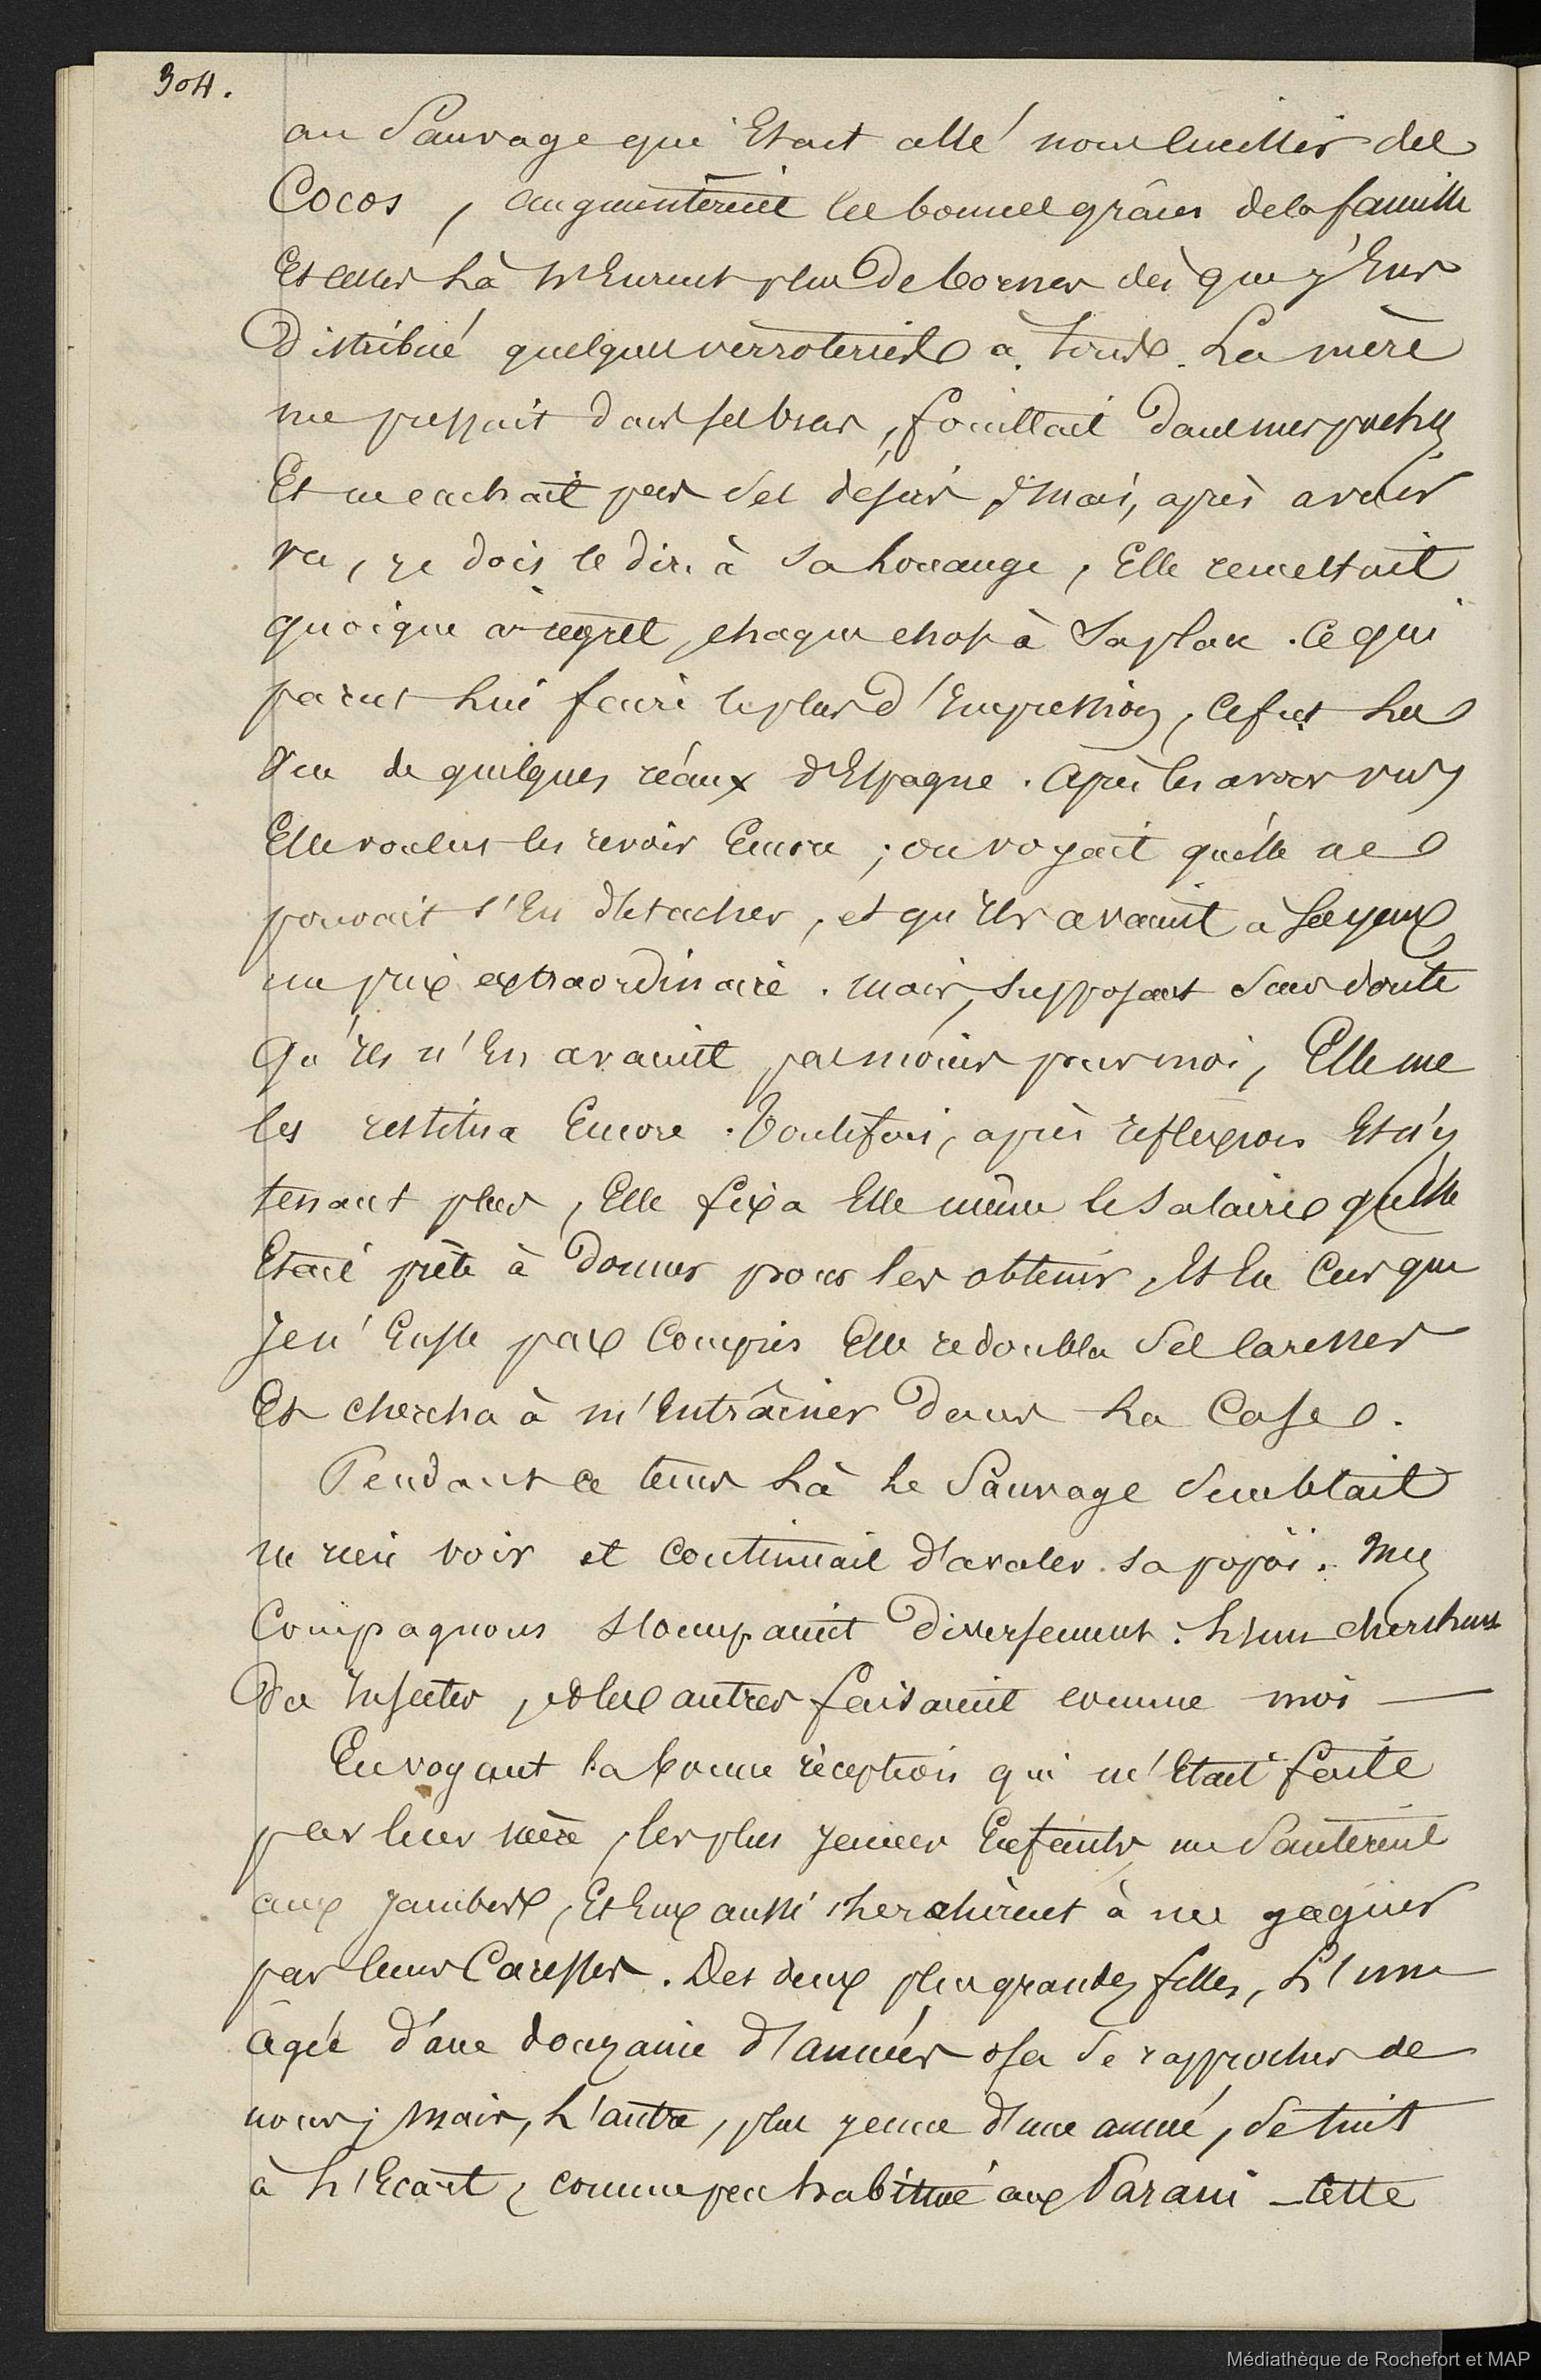 304.
au Sauvage qui Etait allé nous Cueillir des
Cocos, augmentèrent les bonnes grâces de la famille
Et elles là n'Eurent plus De bornes dès que j'Eus
Distribué quelques verroteries à tous. La mère
me pressait dans ses bras, fouillait Dans mes poches
Et ne cachait pas Ses désirs ; mais, après avoir
vu, je dois le dire à Sa Louange, Elle remettait
quoique à regret, chaque chose à Sa place. Ce qui
parut Lui faire le plus d'Impression, Ce fut La
Vue de quelques réaux d'Espagne. Après les avoir vus
Elle voulut les revoir Encore ; on voyait qu'elle ne
pouvait s'En détacher, et qu'Ils avaient à Ses yeux
un prix extraordinaire. mais, Supposant Sans doute
Qu'Ils n'En avaient pas moins pour moi, Elle me
les restitua Encore. Toutefois, après réflexion Et n'y
tenant plus, Elle fixa Elle même le Salaire qu'elle
Etait prête à Donner pour les obtenir, Et En Cas que
Je n'Eusse pas Compris Elle redoubla Ses Caresses
Et chercha à m'Entraîner Dans La Case.
Pendant ce tems Là Le Sauvage Semblait
ne rien voir et Continuait d'avaler sa popoï. Mes
Compagnons s'occupaient Diversement : L'un cherchant
Des Insectes, et les autres faisaient comme moi —
En voyant la bonne réception qui m'Etait faite
par leur mère, les plus jeunes Enfants me Sautèrent
aux jambes, Et Eux aussi cherchèrent à me gagner
par leurs Caresses. Des deux plus grandes filles, L'une
âgée d'une douzaine d'années osa Se rapprocher de
nous ; mais, L'autre, plus jeune d'une année, Se tint
à L'Ecart, comme peu habitué aux Farani - Cette
Médiathèque de Rochefort et MAP